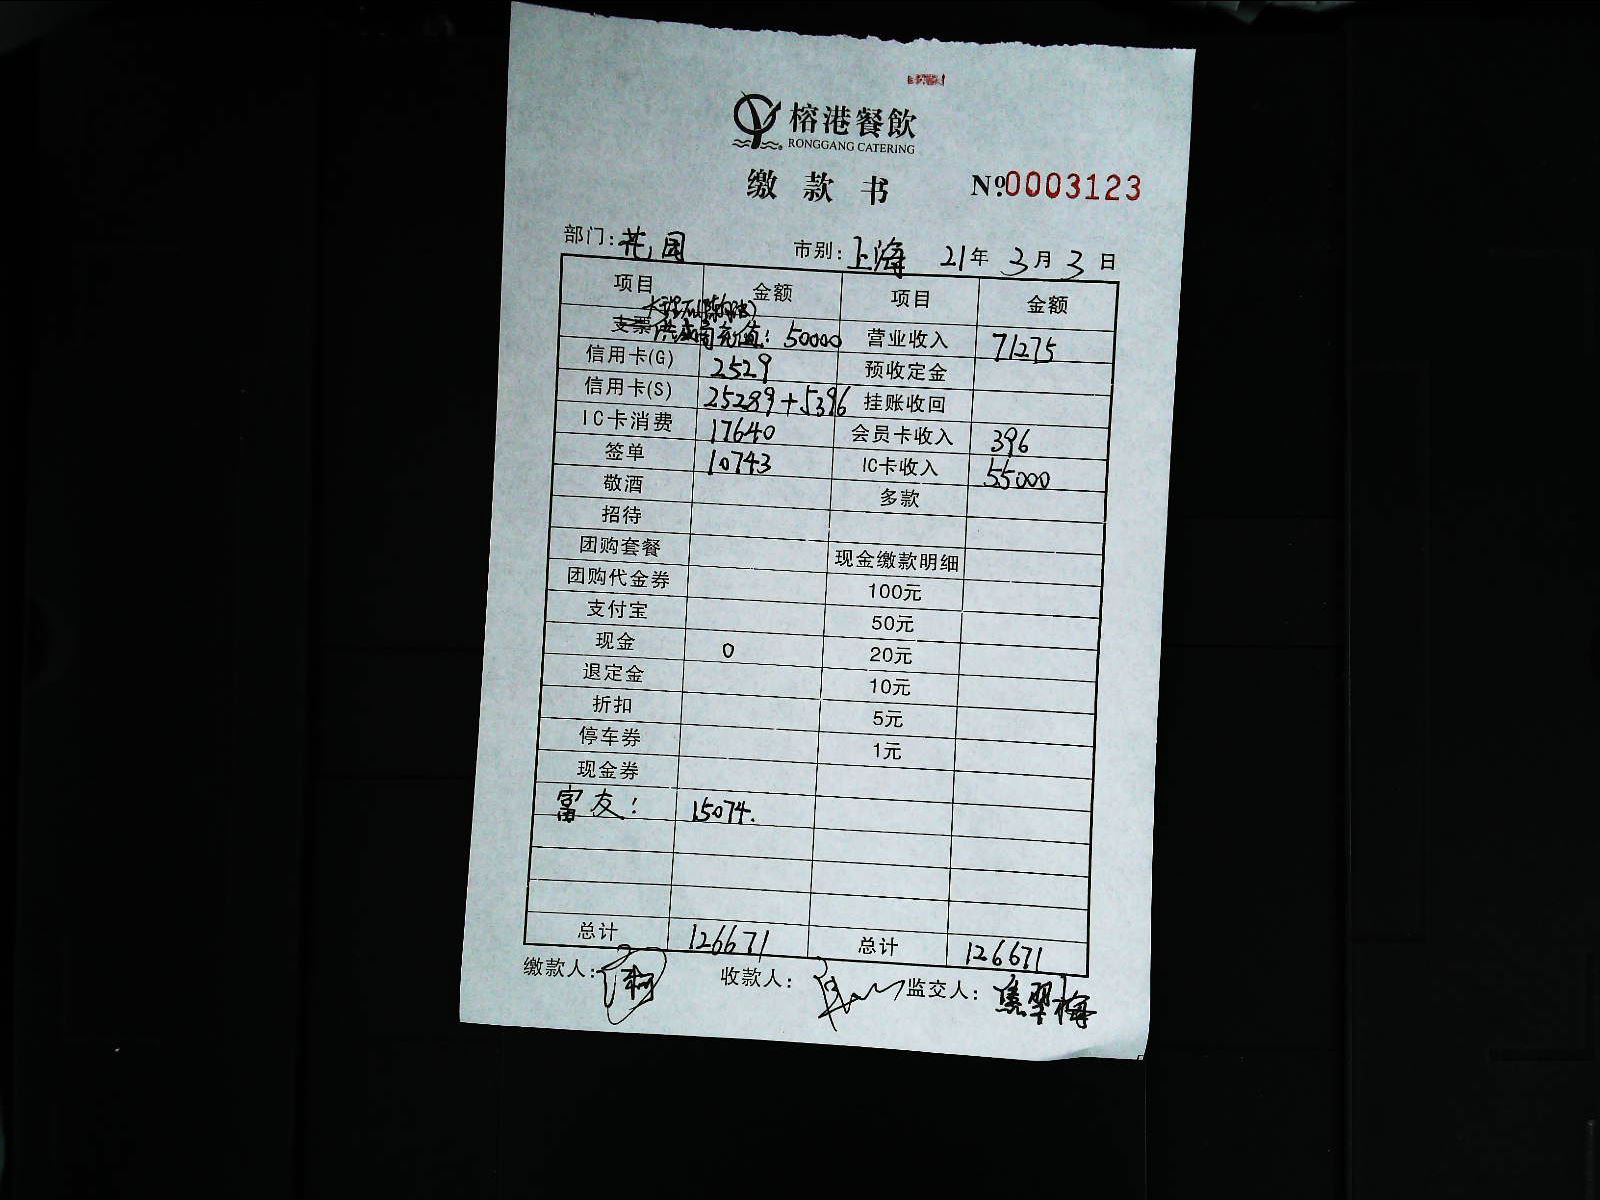 榕港餐飲
RONGGANG CATERING
缴款书 №0003123
部门:花园 市别:上海 21年3月3日
项目 金额 项目 金额
支票 供应商充值:50000 营业收入 71275
信用卡(G) 2529 预收定金
信用卡(S) 25289+5396 挂账收回
IC卡消费 17640 会员卡收入 396
签单 10743 IC卡收入 55000
敬酒 多款
招待
团购套餐 现金缴款明细
团购代金券 100元
支付宝 50元
现金 0 20元
退定金 10元
折扣 5元
停车券 1元
现金券
富友: 15074.
总计 126671 总计 126671
缴款人: 收款人: 监交人:焦翠梅